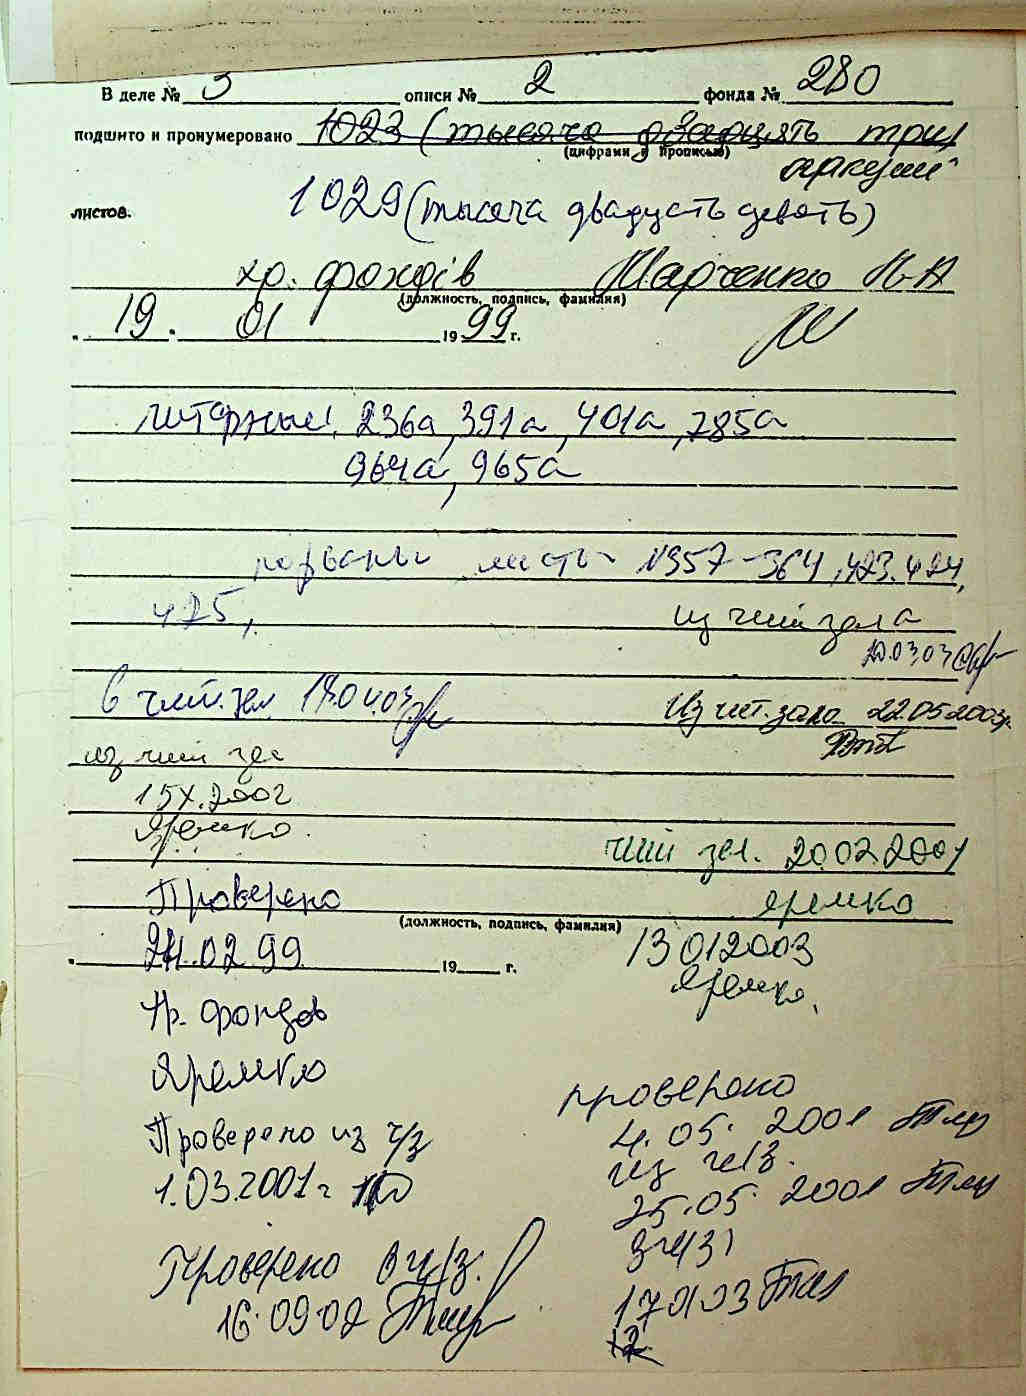 В деле № 3 описи № 2 фонда № 280
подшито и пронумеровано 1023 (тысяча двадцять три)
(цифрами и прописью) аркуші
листов. 1029 (тысяча двадцать девять)
хр. фондів Марченко
(должность, подпись, фамилия)
19. 01 1999 г.
литерные: 236а, 391а, 401а, 785а
964а, 965а
порваны листы №357-364, 423, 424,
425,
из чит зала
20.03.03
в чит. зал
Из чит. зала 22.05.2003г.
из чит зал
15 X. 2002
Яремко
чит зал. 20.02.2001
Яремко
Проверено
(должность, подпись, фамилия)
24.02 99 19 г.
13 01 2003
Яремко
Хр. фондов
Яремко
проверено
4.05. 2001
из ч/з.
Проверено из ч/з
1.03.2001 г
25.05 2001
Проверено в ч/з.
16.09.02
17 01 03